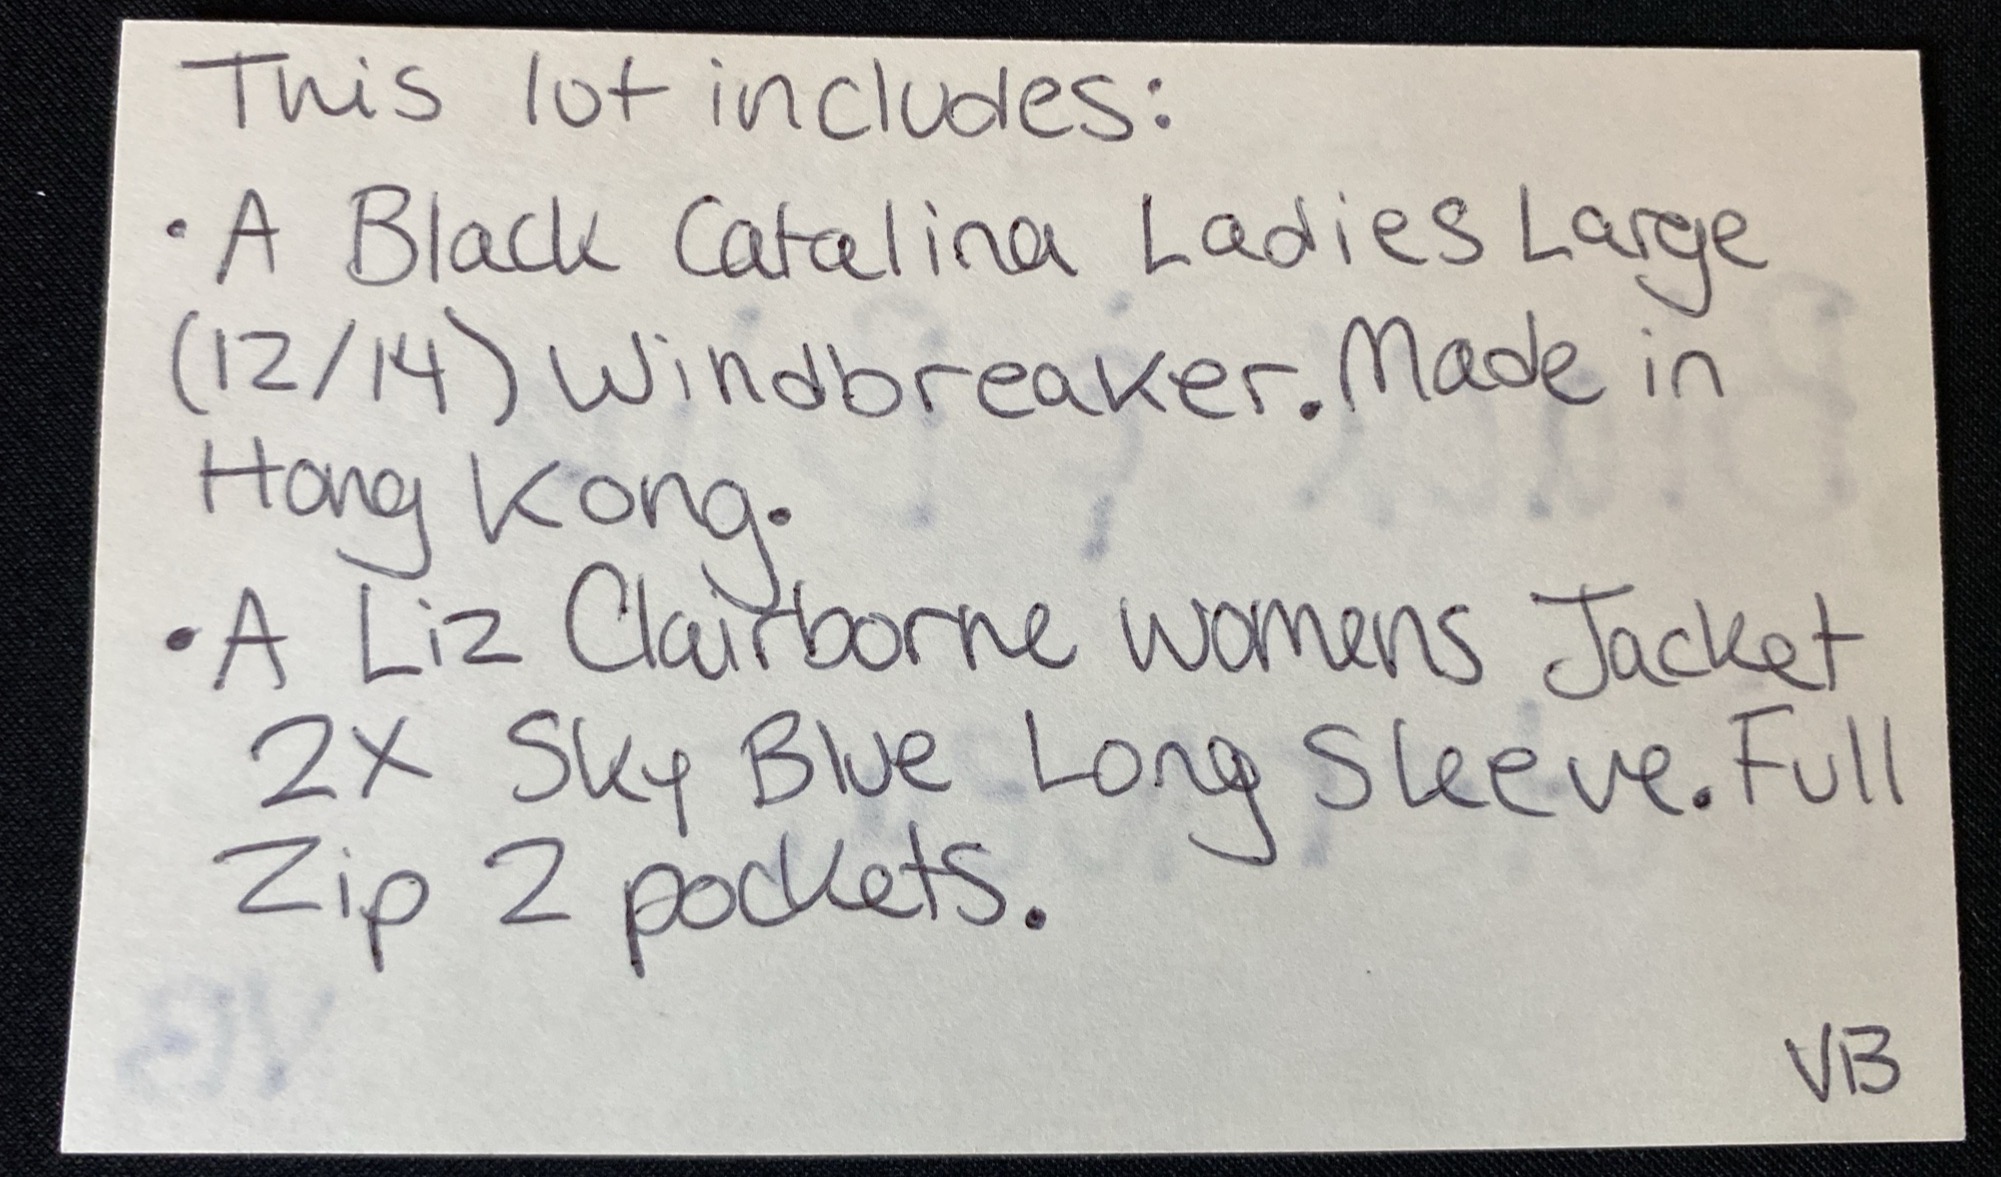 This lot includes:
• A Black Catalina Ladies Large
(12/14) Windbreaker. Made in
Hong Kong.
• A Liz Clairborne womens Jacket
2X Sky Blue Long Sleeve. Full
Zip 2 pockets.
VB